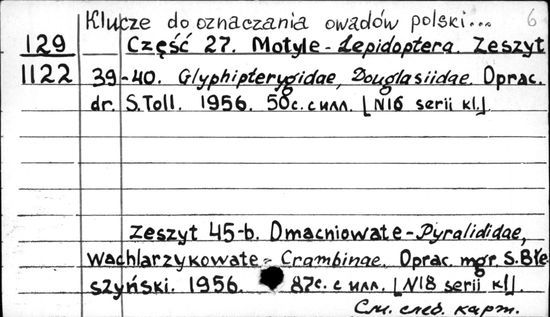 Klucze do oznaczania owadów polski... 6
129 Część 27. Motyle - Lepidoptera. Zeszyt
1122 39-40. Glyphipterygidae, Douglasiidae. Oprac.
dr. S. Toll. 1956. 50с. с илл. [N16 serii kl.]
Zeszyt 45-b. Omacniowate - Pyralididae,
Wachlarzykowate - Crambinae. Oprac. mgr. S. Błe
szyński. 1956. 87с. с илл. [N18 serii kl.]
См. след. карт.